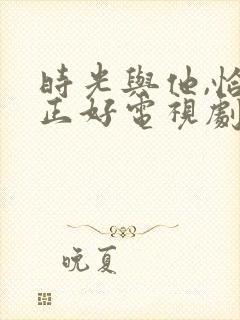 時光與他,恰
正好電視劇
晚夏